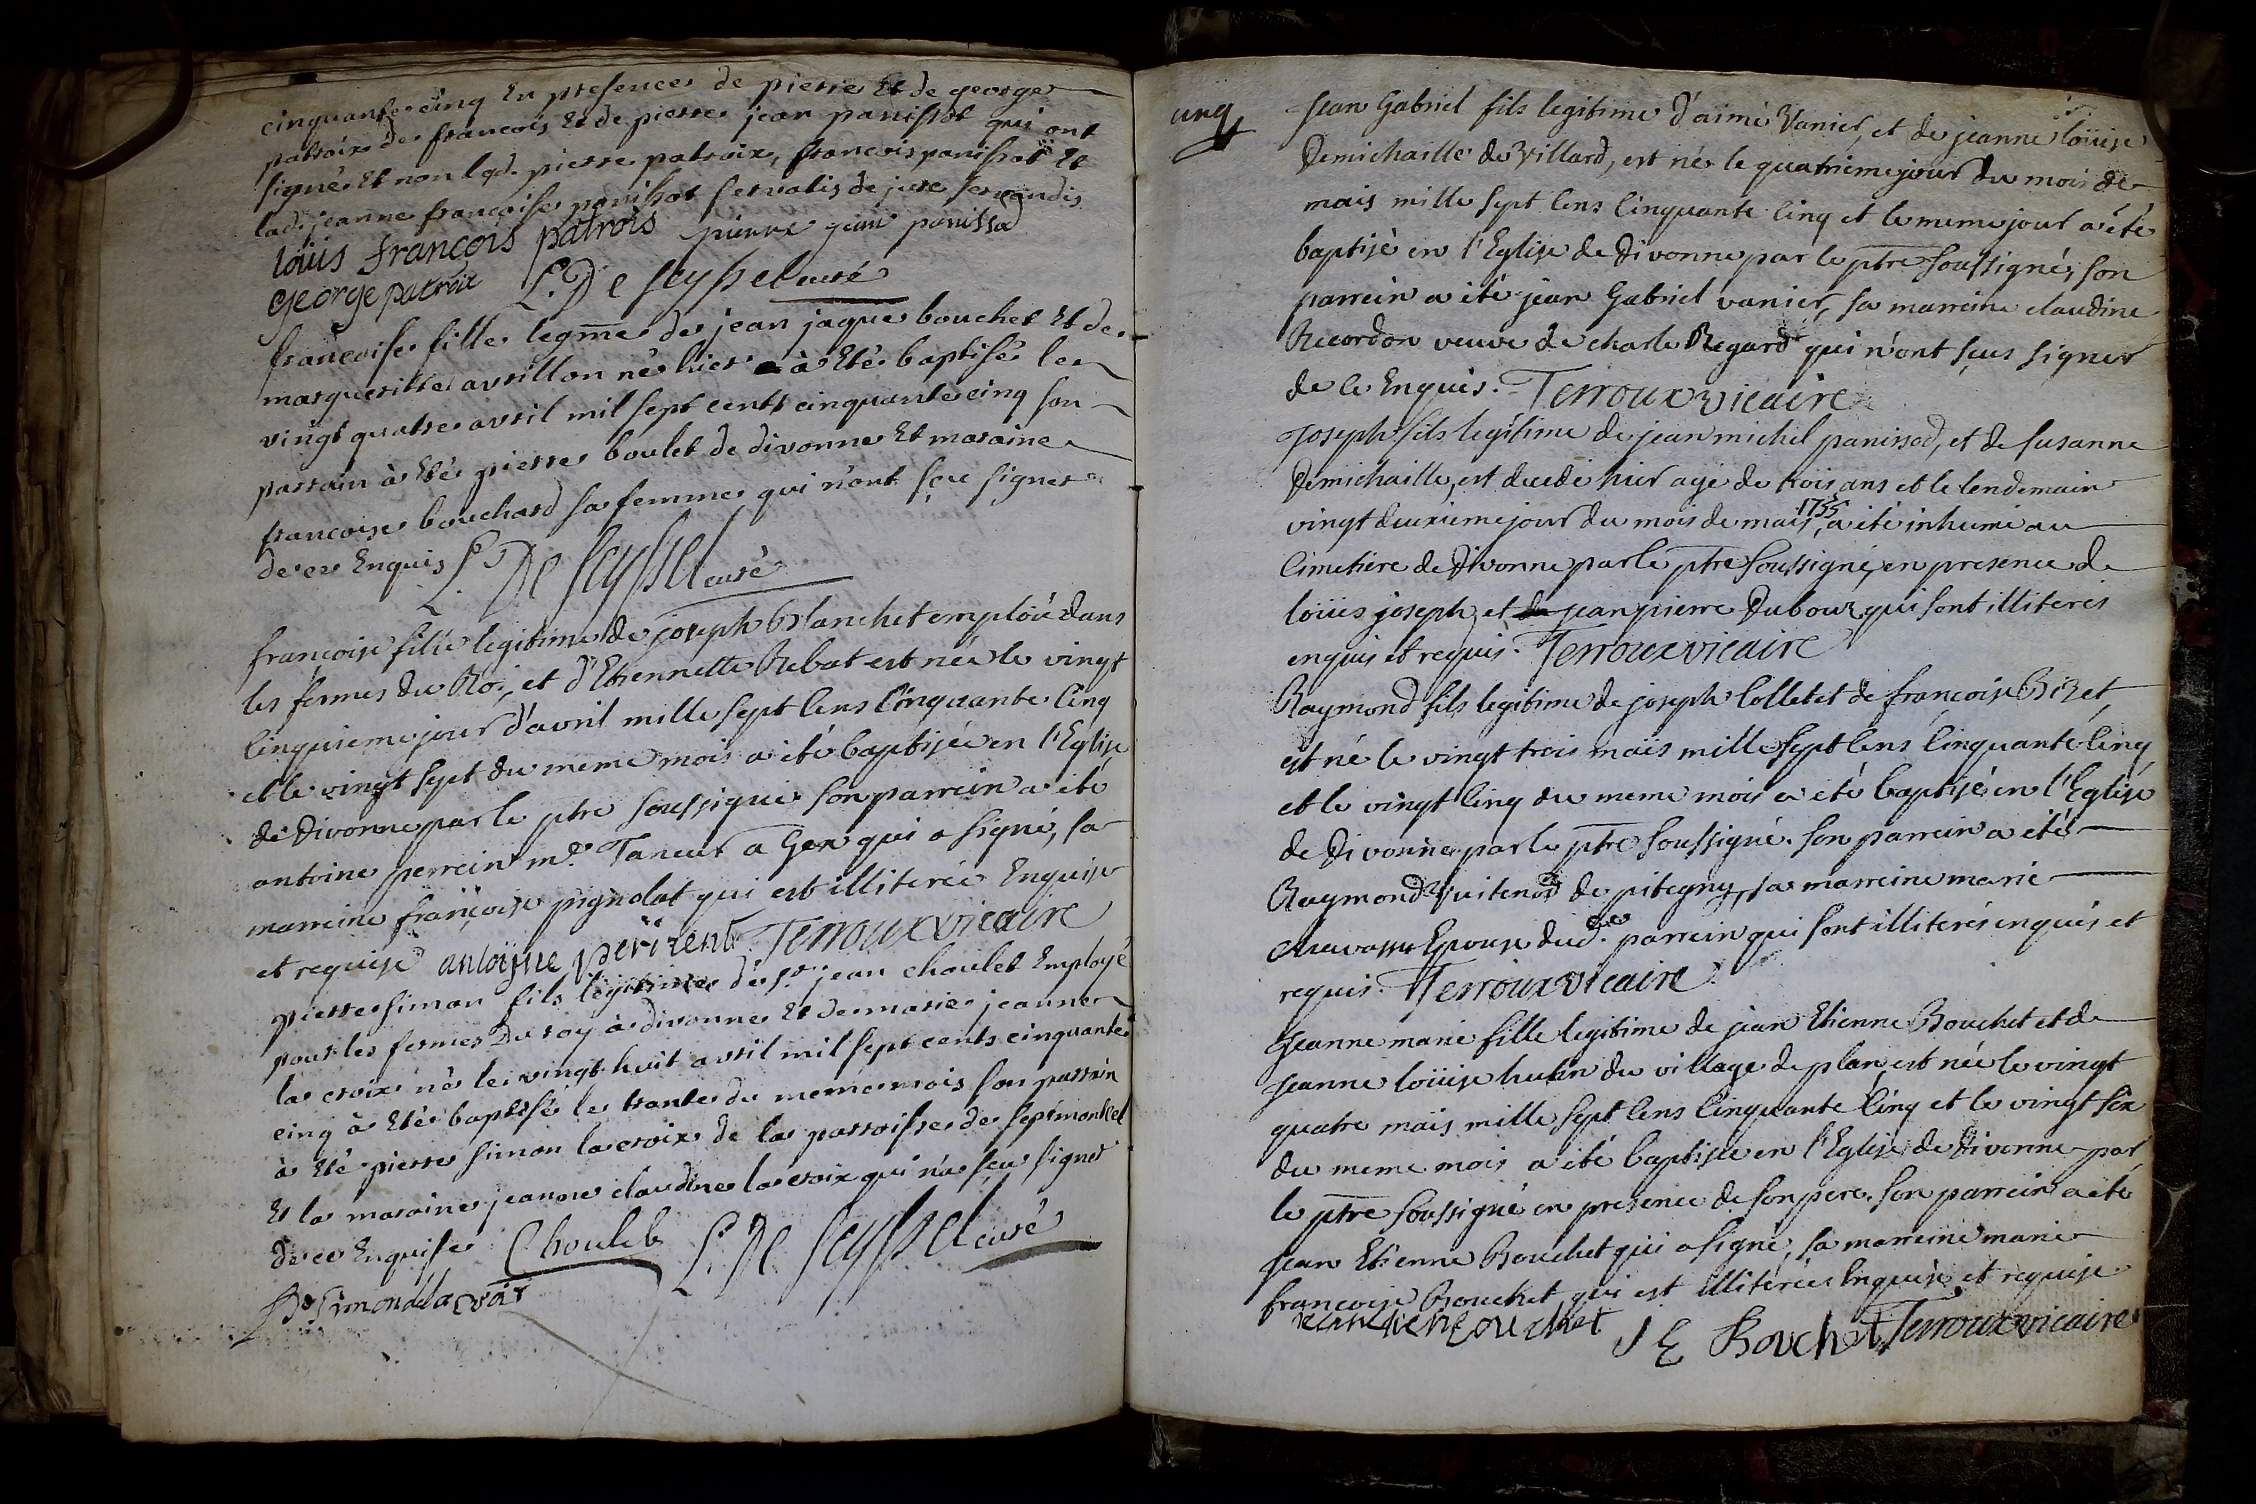 cinquante cinq En presence de pierre Et de george
patroix de francois Et de pierre jean panissot qui ont
signé Et non led. pierre patroix, francois panissot Et
lad. jeanne francoise panissot servatis de jure servandis
loüis françois patrois pierre jean panissod
george patroix L. De Seyssel curé
francoise fille legme de jean jaque bouchet Et de
margueritte avrillon née hier à Eté baptisée le
vingt quatre avril mil sept cents cinquante cinq son
parrain à Eté pierre boulet de divonne Et maraine
francoise bouchard sa femme qui n'ont sçeu signer
de ce Enquis L. De Seyssel curé
françoise fille legitime de joseph Blanchet emploié dans
les fermes du Roi, et d'Etiennette Rebat est née le vingt
cinquieme jour d'avril mille sept cens cinquante cinq
et le vingt sept du meme mois a été baptisée en l'Eglise
de Divonne par le ptre soussigné son parrein a été
antoine perrein me Taneur a Gex qui a signé, sa
marreine françoise pignolat qui est illiterée Enquise
et requise antoine Terroux vicaire
pierre simon fils legitime de sr jean choulet Employé
pour les fermes Du roy à divonne Et de marie jeanne
la croix né le vingt huit avril mil sept cents cinquante
cinq à Eté baptisé le trante du meme mois son parrain
à Eté pierre simon la croix de la parroisse de septmontcel
Et la maraine jeanne claudine la croix qui n'a sçeu signer
de ce Enquise Choulet L. De Seyssel curé
Pe Simon delacroix
unq Jean Gabriel fils legitime d'aimé Vanier, et de jeanne loüise
Demichaille de Villard, est né le quatrieme jour du mois de
mais mille sept cens cinquante cinq et le meme jour a été
baptisé en l'Eglise de Divonne par le ptre soussigné, son
parrein a été jean Gabriel vanier, sa marreine claudine
Recordon veuve de charle Regard qui n'ont sçus signer
de ce Enquis. Terroux vicaire
Joseph fils legitime de jean michel panissod, et de susanne
Demichaille, est decedé hier agé de trois ans et le lendemain
vingt deuxieme jour du mois de mais 1755, a été inhumé au
cimetiere de Divonne par le ptre soussigné, en presence de
loüis joseph et jean pierre Dubour qui sont illiteres
enquis et requis. Terroux vicaire
Raymond fils legitime de joseph Collet et de françoise Bizet,
est né le vingt trois mais mille sept cens cinquante cinq
et le vingt cinq du meme mois a été baptisé en l'Eglise
de Divonne par le ptre soussigné. son parrein a été
Raymond de pitegny, sa marreine marie
Epouse dud. parrein qui sont illiterés enquis et
requis. Terroux vicaire
Jeanne marie fille legitime de jean Etienne Bouchet et de
Jeanne loüise hutin du village de plan, est née le vingt
quatre mais mille sept cens cinquante cinq et le vingt six
du meme mois a été baptisée en l'Eglise de Divonne par
le ptre soussigné en presence de son pere. son parrein a été
Jean Etienne Bouchet qui a signé, sa marreine marie
françoise Bouchet qui est illiterée Enquise et requise.
J E Bouchet Terroux vicaire